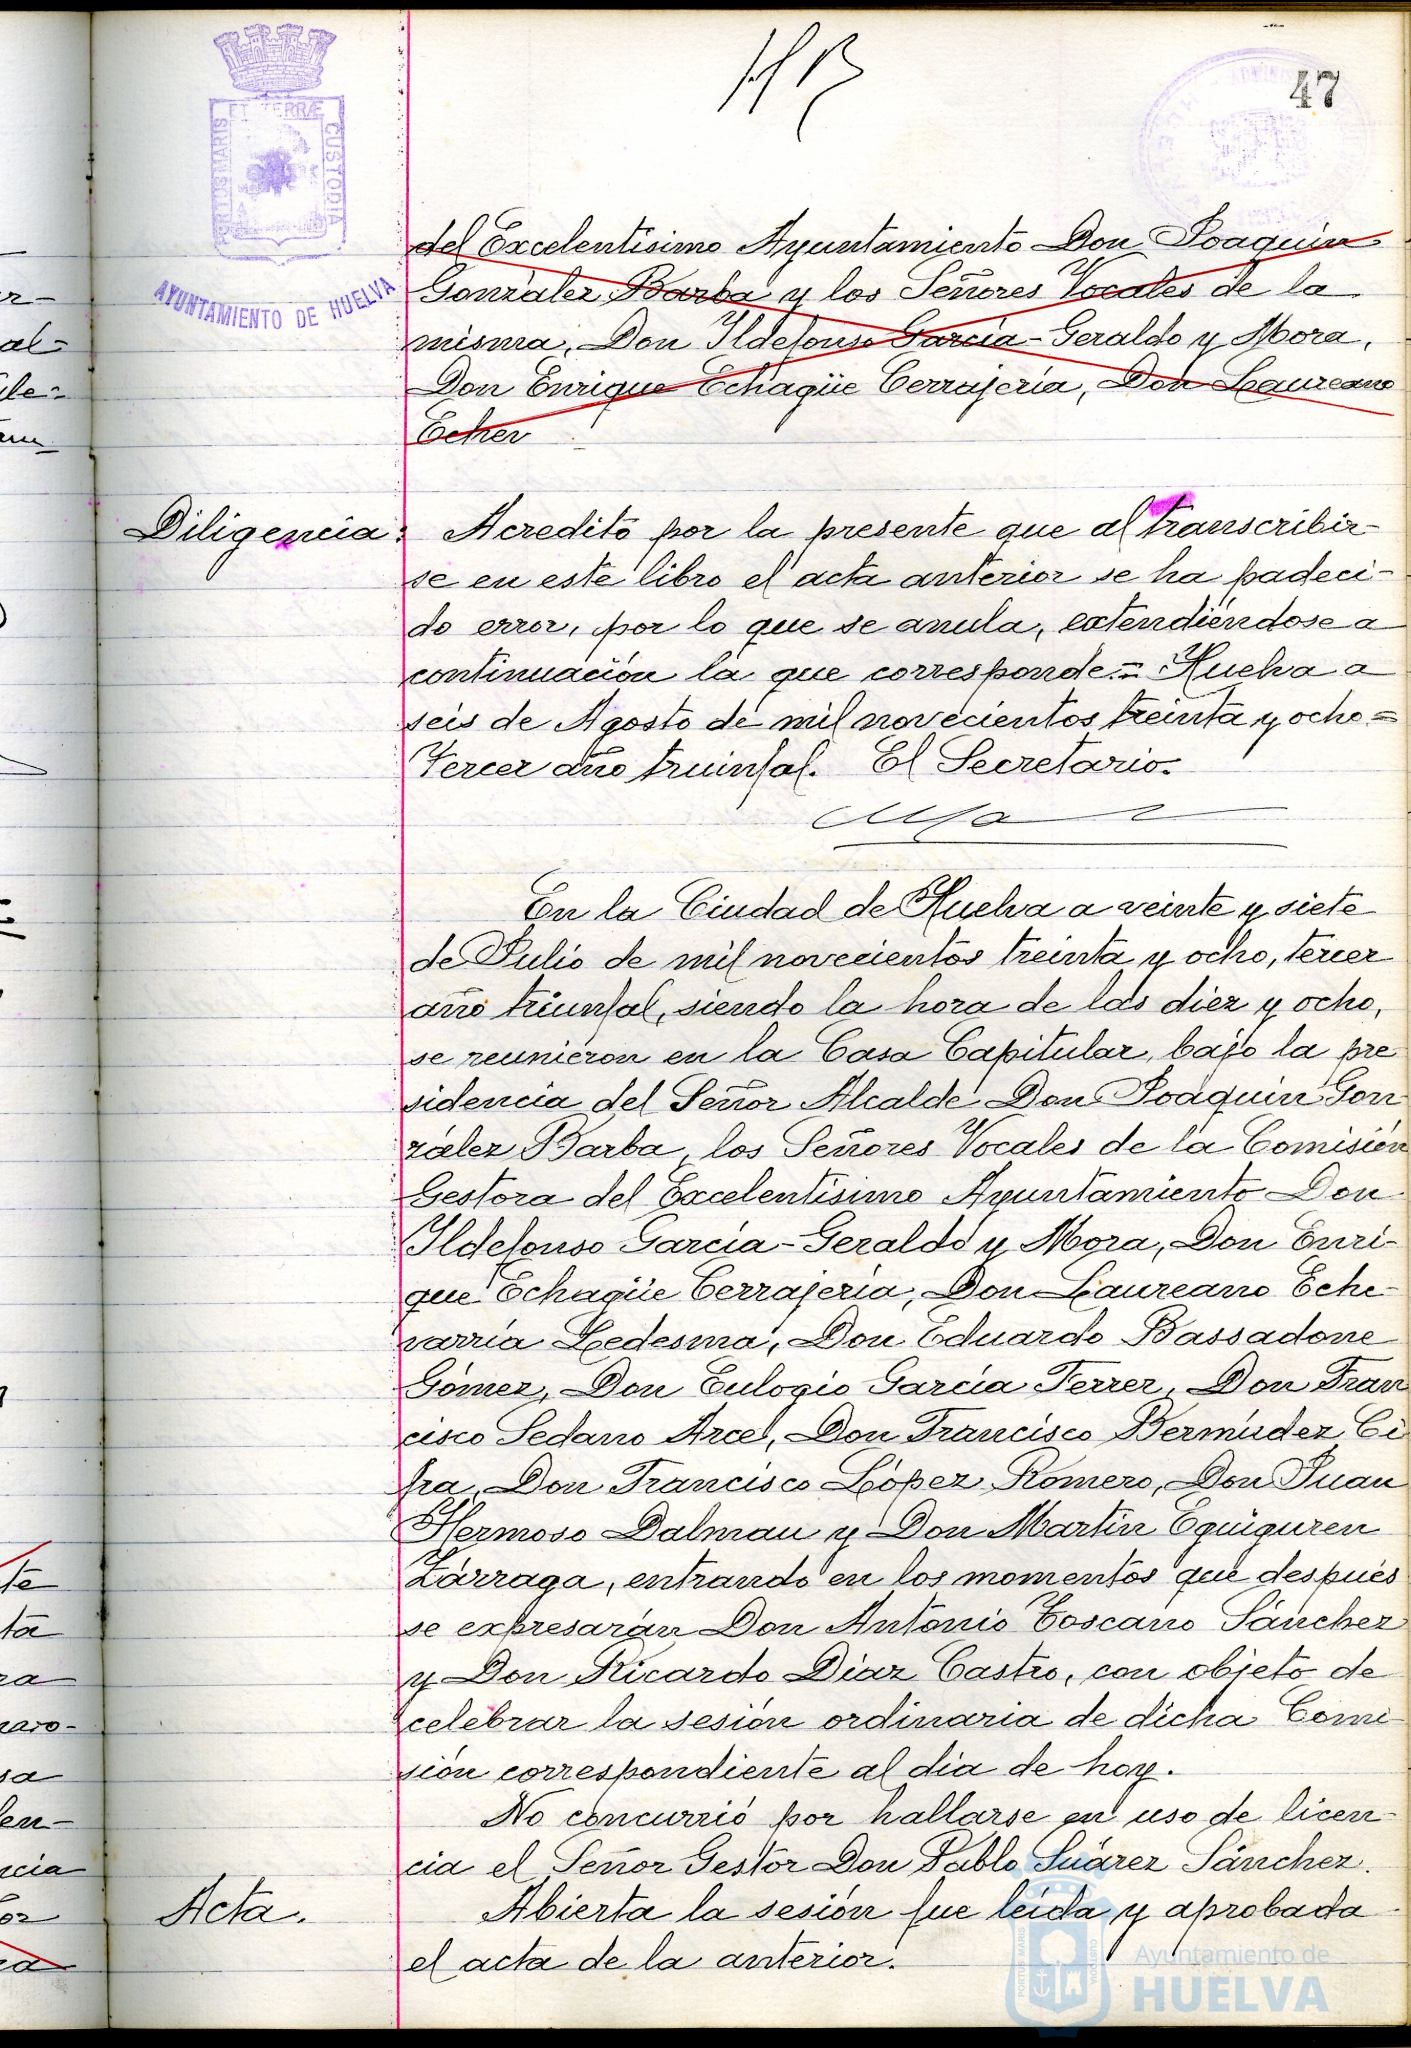 47
PORTUS MARIS ET TERRÆ CUSTODIA
AYUNTAMIENTO DE HUELVA
del Excelentísimo Ayuntamiento Don Joaquín
González Barba y los Señores Vocales de la
misma, Don Ildefonso García-Geraldo y Mora,
Don Enrique Echagüe Cerrajería, Don Laureano
Echev
Diligencia:
Acredito por la presente que al transcribir-
se en este libro el acta anterior se ha padeci-
do error, por lo que se anula, extendiéndose a
continuación la que corresponde.= Huelva a
seis de Agosto de mil novecientos treinta y ocho=
Tercer año triunfal. El Secretario.
En la Ciudad de Huelva a veinte y siete
de Julio de mil novecientos treinta y ocho, tercer
año triunfal, siendo la hora de las diez y ocho,
se reunieron en la Casa Capitular, bajo la pre
sidencia del Señor Alcalde Don Joaquín Gon
zález Barba, los Señores Vocales de la Comisión
Gestora del Excelentísimo Ayuntamiento Don
Ildefonso García-Geraldo y Mora, Don Enri-
que Echagüe Cerrajería, Don Laureano Eche-
varría Ledesma, Don Eduardo Bassadone
Gómez, Don Eulogio García Ferrer, Don Fran
cisco Sedano Arce, Don Francisco Bermúdez Ci
fra, Don Francisco López Romero, Don Juan
Hermoso Dalmau y Don Martín Eguiguren
Zárraga, entrando en los momentos que después
se expresarán Don Antonio Toscano Sánchez
y Don Ricardo Díaz Castro, con objeto de
celebrar la sesión ordinaria de dicha Comi-
sión correspondiente al día de hoy.
No concurrió por hallarse en uso de licen-
cia el Señor Gestor Don Pablo Suárez Sánchez.
Acta.
Abierta la sesión fue leída y aprobada
el acta de la anterior.
Ayuntamiento de
HUELVA